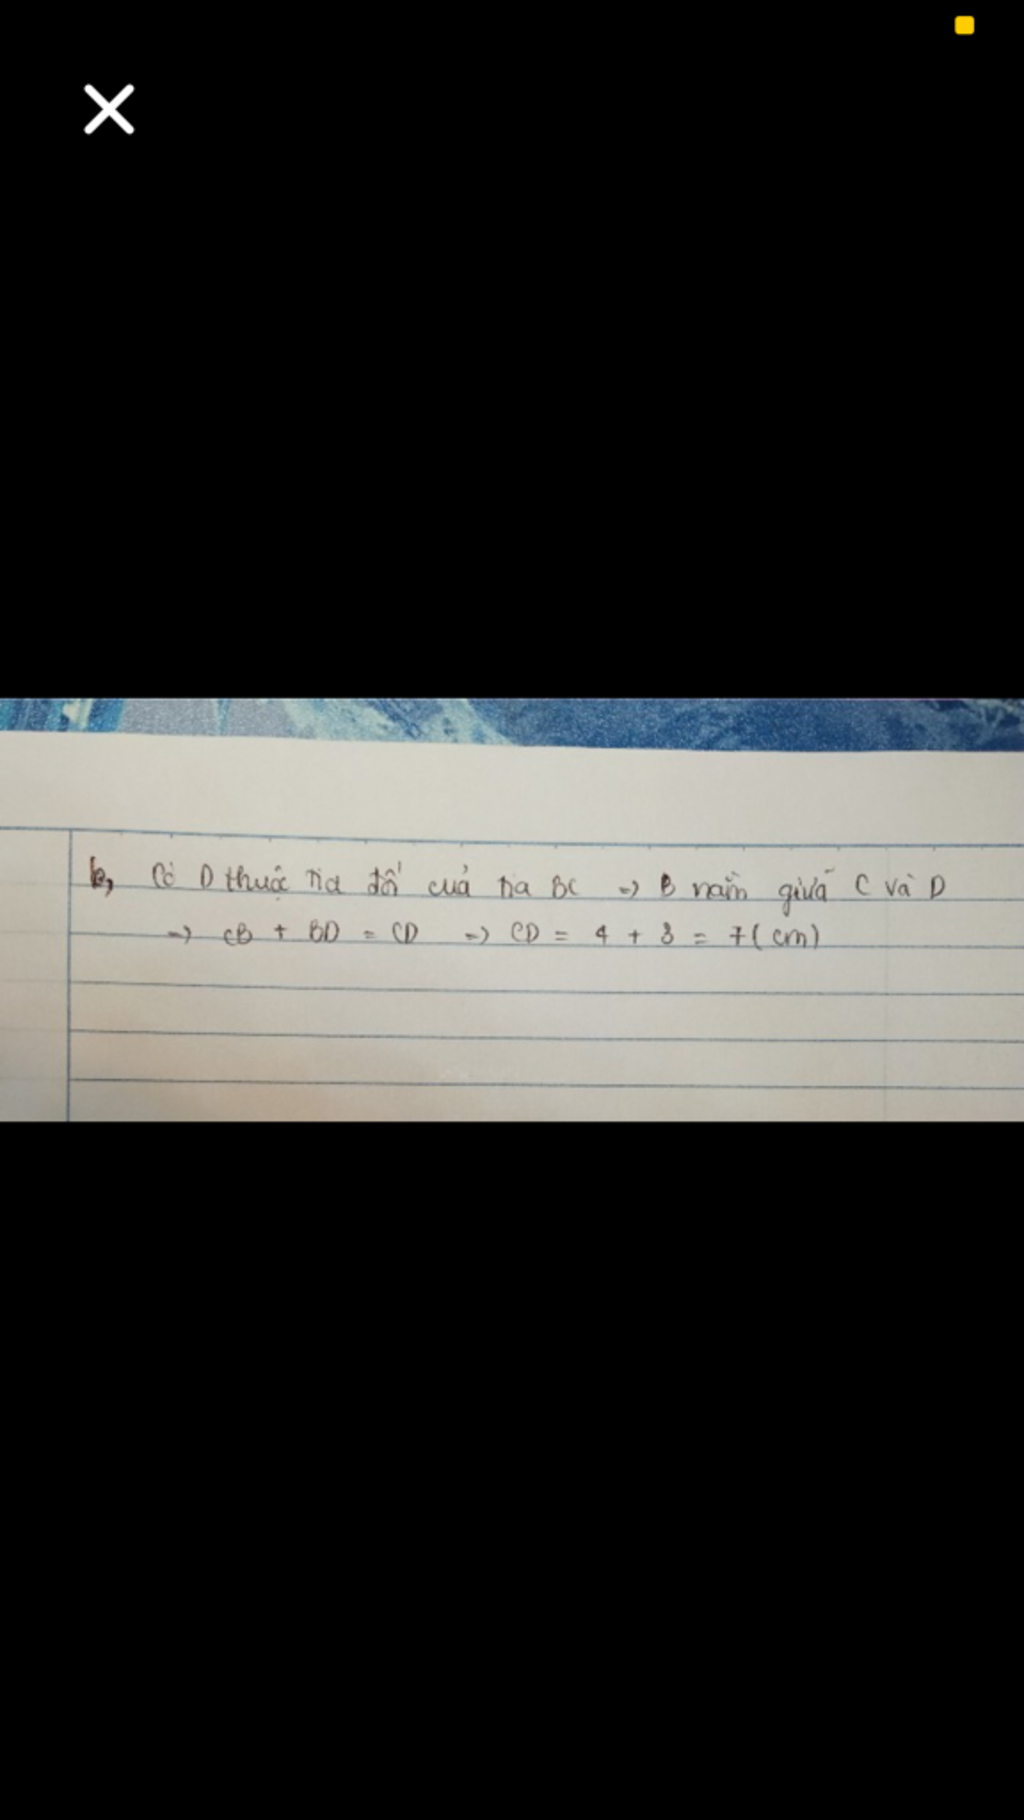 b, Có D thuộc tia đối của tia BC => B nằm giữa C và D
=> CB + BD = CD => CD = 4 + 3 = 7 (cm)